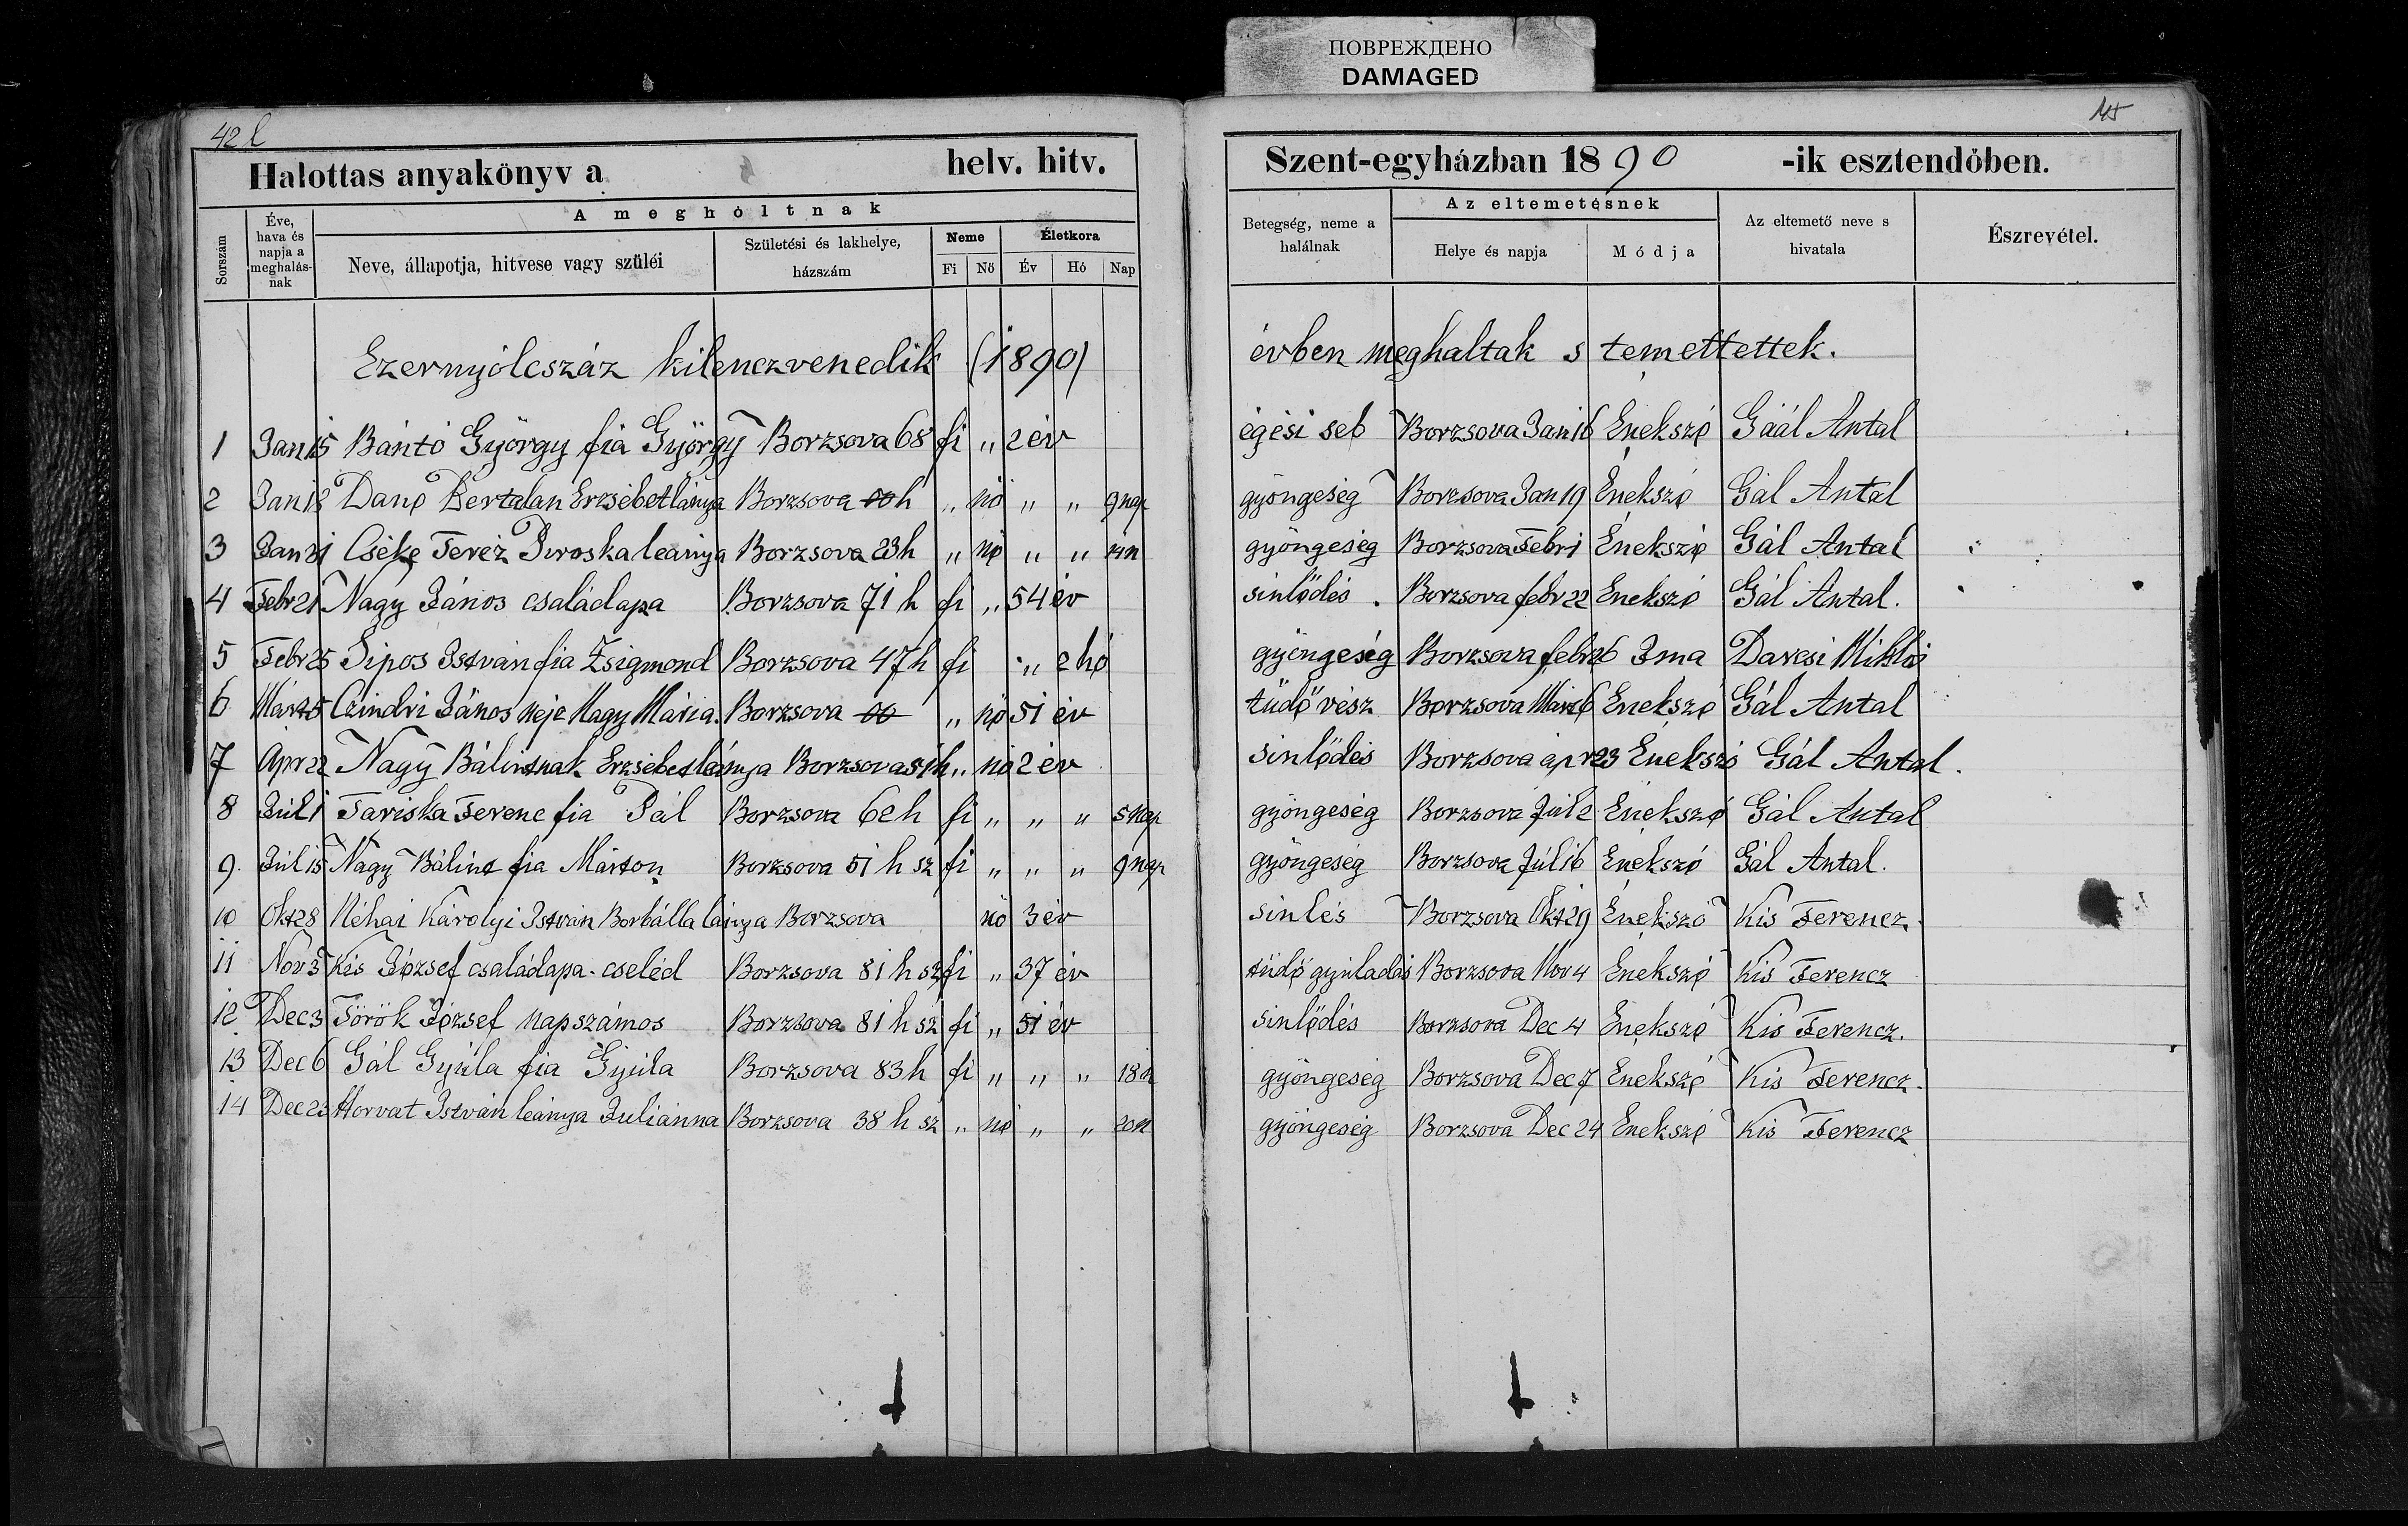 ПОВРЕЖДЕНО
DAMAGED
42 l
Halottas anyakönyv a helv. hitv.
Sorszám
Éve, hava és napja a meghalás-nak
A meghóltnak
Neve, állapotja, hitvese vagy szüléi
Születési és lakhelye, házszám
Neme
Életkora
Fi Nő Év Hó Nap
Ezernyólcszáz kilenczvenedik (1890)
1 Jan 15 Bántó György fia György Borzsova 68 fi „ 2 év
2 Jan 18 Danó Bertalan Erzsébet lánya Borzsova 00 h „ nő „ „ 9 nap
3 Jan 31 Cséke Teréz Piroska leánya Borzsova 23 h „ nő „ „
4 Febr 21 Nagy János családapa Borzsova 71 h fi „ 54 év
5 Febr 25 Sipos István fia Zsigmond Borzsova 47 h fi „ 2 hó
6 Márt 5 Czindri János neje Nagy Mária. Borzsova 00 „ nő 51 év
7 Ápr 22 Nagy Bálintnak Erzsébet leánya Borzsova 51 h „ nő 2 év
8 Júl 1 Tariska Ferenc fia Pál Borzsova 62 h fi „ „ „ 5 nap
9. Júl 15 Nagy Bálint fia Márton Borzsova 51 h sz fi „ „ „ 9 nap
10 Okt 28 Néhai Károlyi István Borbálla lánya Borzsova nő 3 év
11 Nov 3 Kis József családapa - cseléd Borzsova 81 h sz fi „ 37 év
12. Dec 3 Török József napszámos Borzsova 81 h sz fi „ 51 év
13 Dec 6 Gál Gyúla fia Gyúla Borzsova 83 h fi „ „ „ 18 n
14 Dec 23 Horvat István leánya Juliánna Borzsova 38 h sz „ nő „ „ 20 n
Szent-egyházban 1890 -ik esztendőben.
Betegség, neme a halálnak
Az eltemetésnek
Helye és napja
Módja
Az eltemető neve s hivatala
Észrevétel.
évben meghaltak s temettettek.
égési seb Borzsova Jan 16 Énekszó Gáál Antal
gyöngeség Borzsova Jan 19 Énekszó Gál Antal
gyöngeség Borzsova Febr 1 Énekszó Gál Antal
sinlődés . Borzsova febr 22 Énekszó Gál Antal.
gyöngeség Borzsova febr 26 Ima Darcsi Miklós
tüdő vész Borzsova Márt 6 Énekszó Gál Antal
sinlődés Borzsova ápr 23 Énekszó Gál Antal.
gyöngeség Borzsova Júl 2 Énekszó Gál Antal
gyöngeség Borzsova Júl 16 Énekszó Gál Antal.
sinlés Borzsova Okt 29 Énekszó Kis Ferencz.
tüdő gyuladás Borzsova Nov 4 Énekszó Kis Ferencz
sinlődés Borzsova Dec 4 Énekszó Kis Ferencz.
gyöngeség Borzsova Dec 7 Énekszó Kis Ferencz.
gyöngeség Borzsova Dec 24 Énekszó Kis Ferencz